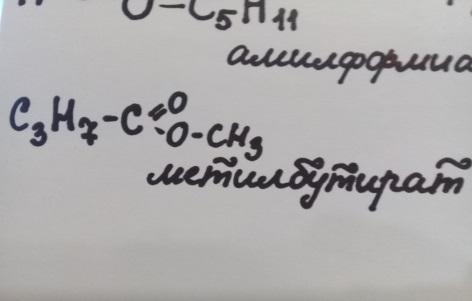 O-C₅H₁₁
амилформиа
C₃H₇-C
O
O-CH₃
метилбутират